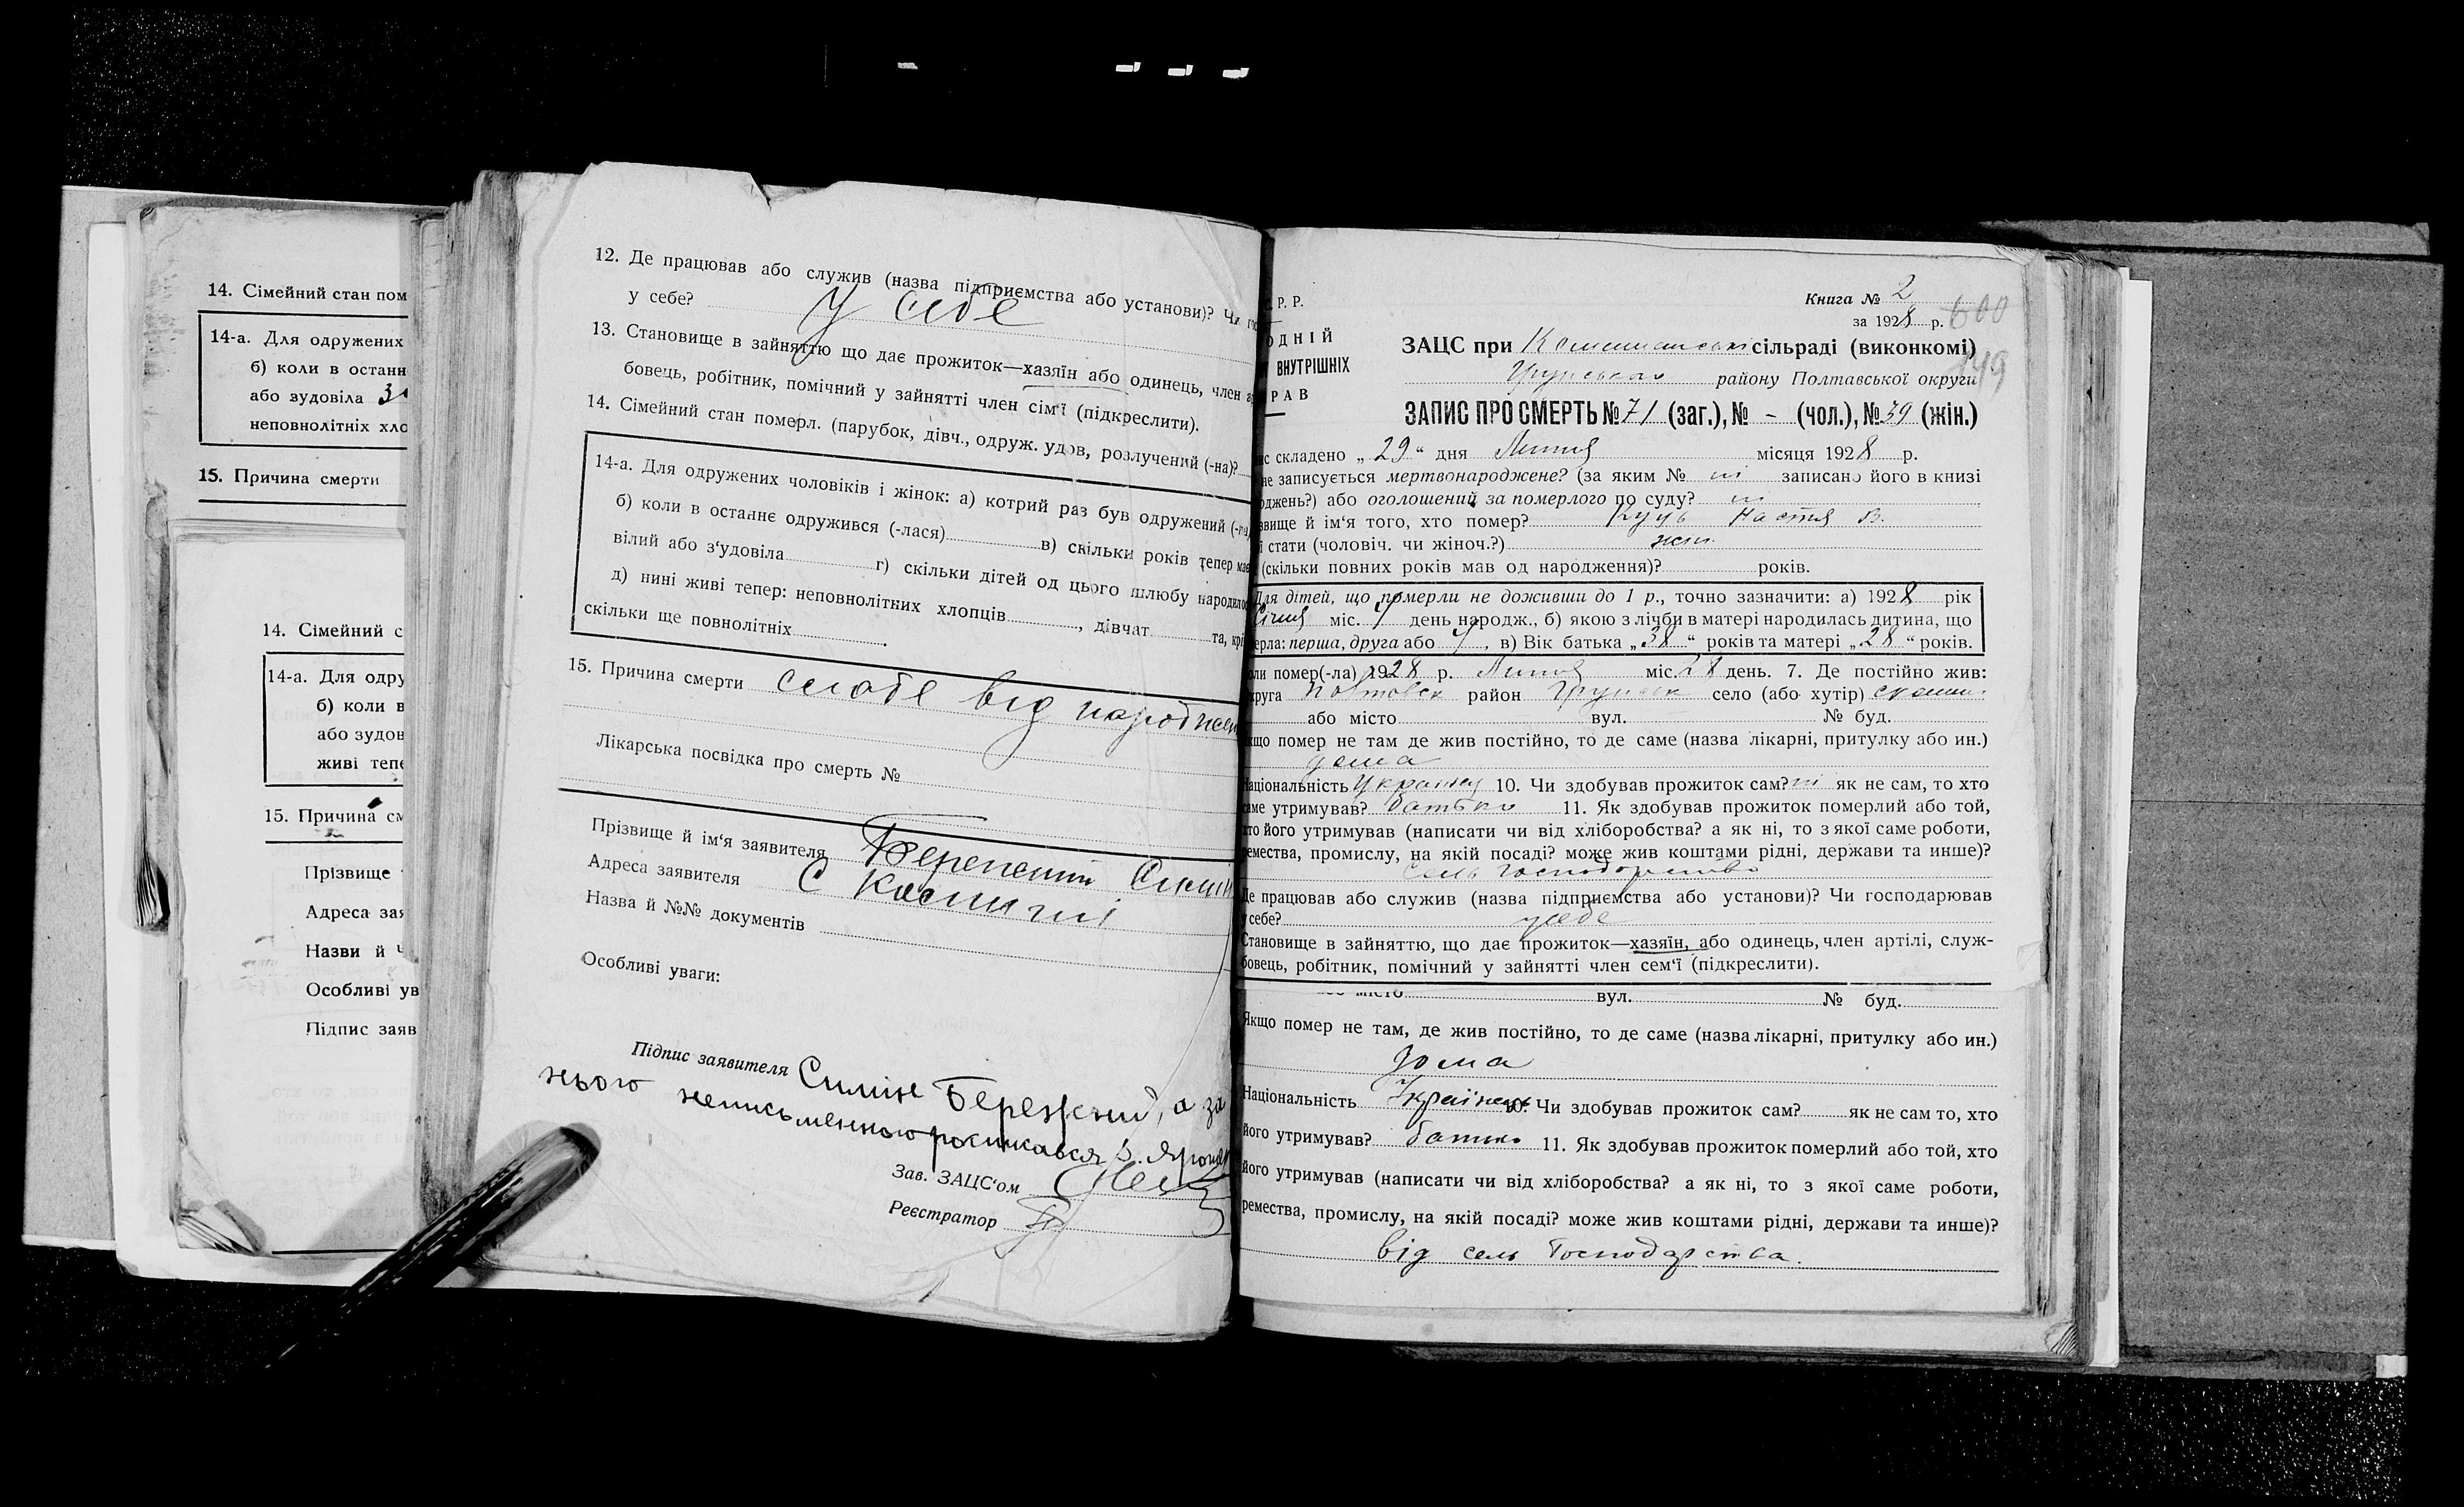 14. Сімейний стан пом
14-а. Для одружених
б) коли в останн
або зудовіла
неповнолітніх хло
15. Причина смерти
14. Сімейний с
14-а. Для одру
б) коли в
або зудов
живі тепе
15. Причина см
Прізвище
Адреса зая
Назви й
Особливі ув
Підпис заяв
12. Де працював або служив (назва підприємства або установи)? Чи го
у себе? У себе
13. Становище в зайняттю що дає прожиток—хазяїн або одинець, член а
бовець, робітник, помічний у зайнятті член сім'ї (підкреслити).
14. Сімейний стан померл. (парубок, дівч., одруж. удов, розлучений (-на)?
14-а. Для одружених чоловіків і жінок: а) котрий раз був одружений (-на)
б) коли в останнє одружився (-лася) в) скільки років тепер має
вілий або з'удовіла г) скільки дітей од цього шлюбу народилос
д) нині живі тепер: неповнолітних хлопців , дівчат та, крі
скільки ще повнолітніх .
15. Причина смерти слабе від народжен
Лікарська посвідка про смерть №
Прізвище й ім'я заявителя
Адреса заявителя С
Назва й №№ документів
Особливі уваги:
Підпис заявителя Симін Бережний, а за
нього неписьменного росписався
Зав. ЗАЦС'ом
Реєстратор
С. Р. Р.
ОДНІЙ
ВНУТРІШНІХ
РАВ
Книга № 2
за 1928 р. 600
ЗАЦС при сільраді (виконкомі)
Грунського району Полтавської округи
ЗАПИС ПРО СМЕРТЬ № 71 (заг.), № - (чол.), № 39 (жін.)
ис складено „ 29 “ дня Липня місяця 1928 р.
не записується мертвонароджене? (за яким № ні записано його в книзі
оджень?) або оголошений за померлого по суду? ні
звище й ім'я того, хто помер? Куць Настя В.
ї стати (чоловіч. чи жіноч.?) жін.
(скільки повних років мав од народження)? років.
Для дітей, що померли не доживши до 1 р., точно зазначити: а) 1928 рік
Січня міс. день народж., б) якою з лічби в матері народилась дитина, що
ерла: перша, друга або , в) Вік батька „ 38 “ років та матері „ 28 “ років.
оли помер(-ла) 1928 р. Липня міс. 28 день. 7. Де постійно жив:
круга район Грунськ село (або хутір)
або місто вул. № буд.
кщо помер не там де жив постійно, то де саме (назва лікарні, притулку або ин.)
дома
аціональність 10. Чи здобував прожиток сам? ні як не сам, то хто
аме утримував? батько 11. Як здобував прожиток померлий або той,
то його утримував (написати чи від хліборобства? а як ні, то з якої саме роботи,
емества, промислу, на якій посаді? може жив коштами рідні, держави та инше)?
сель господарство
Де працював або служив (назва підприємства або установи)? Чи господарював
у себе? у себе
Становище в зайняттю, що дає прожиток—хазяїн, або одинець, член артілі, служ-
бовець, робітник, помічний у зайнятті член сем'ї (підкреслити).
місто вул. № буд.
Якщо помер не там, де жив постійно, то де саме (назва лікарні, притулку або ин.)
дома
Національність Українець 10. Чи здобував прожиток сам? як не сам то, хто
його утримував? батько 11. Як здобував прожиток померлий або той, хто
його утримував (написати чи від хліборобства? а як ні, то з якої саме роботи,
ремества, промислу, на якій посаді? може жив коштами рідні, держави та инше)?
від сель господарства.